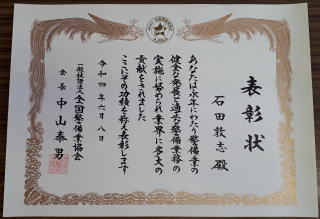 表彰状
石田敦志殿
あなたは永年にわたり警備業の
健全な発展と適正な警備業務の
実施に努められ業界に多大の
貢献をされました
ここにその功績を称え表彰します
令和四年六月八日
一般社団法人全国警備業協会
会長中山泰男